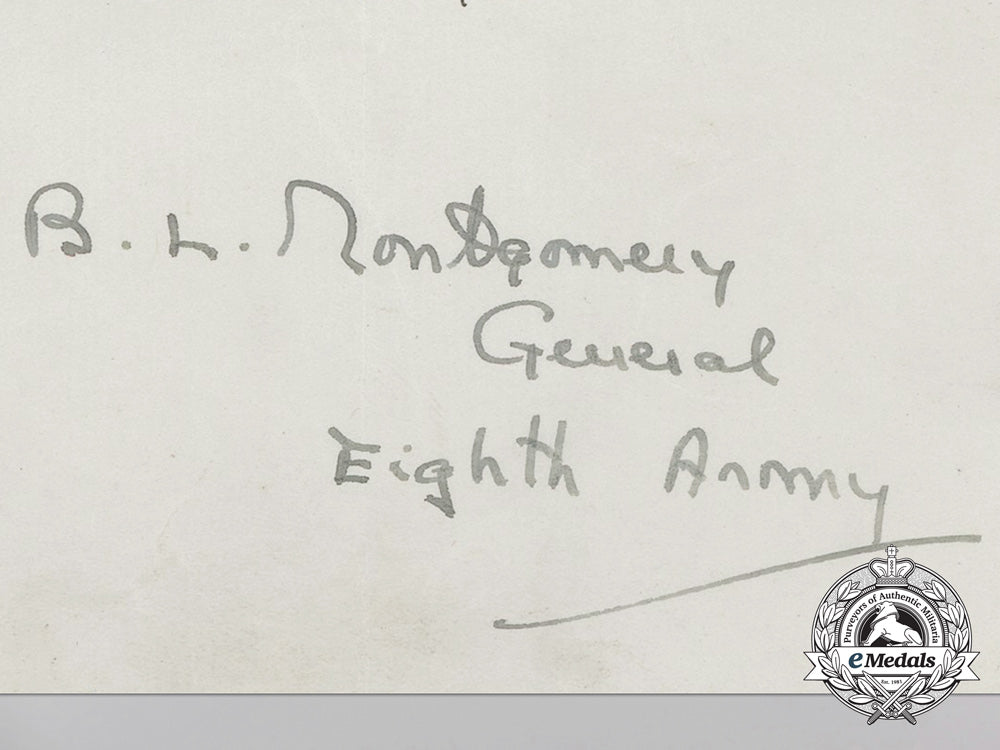 B. L. Montgomery
General
Eighth Army
Purveyors of Authentic Militaria
eMedals
Est. 1981